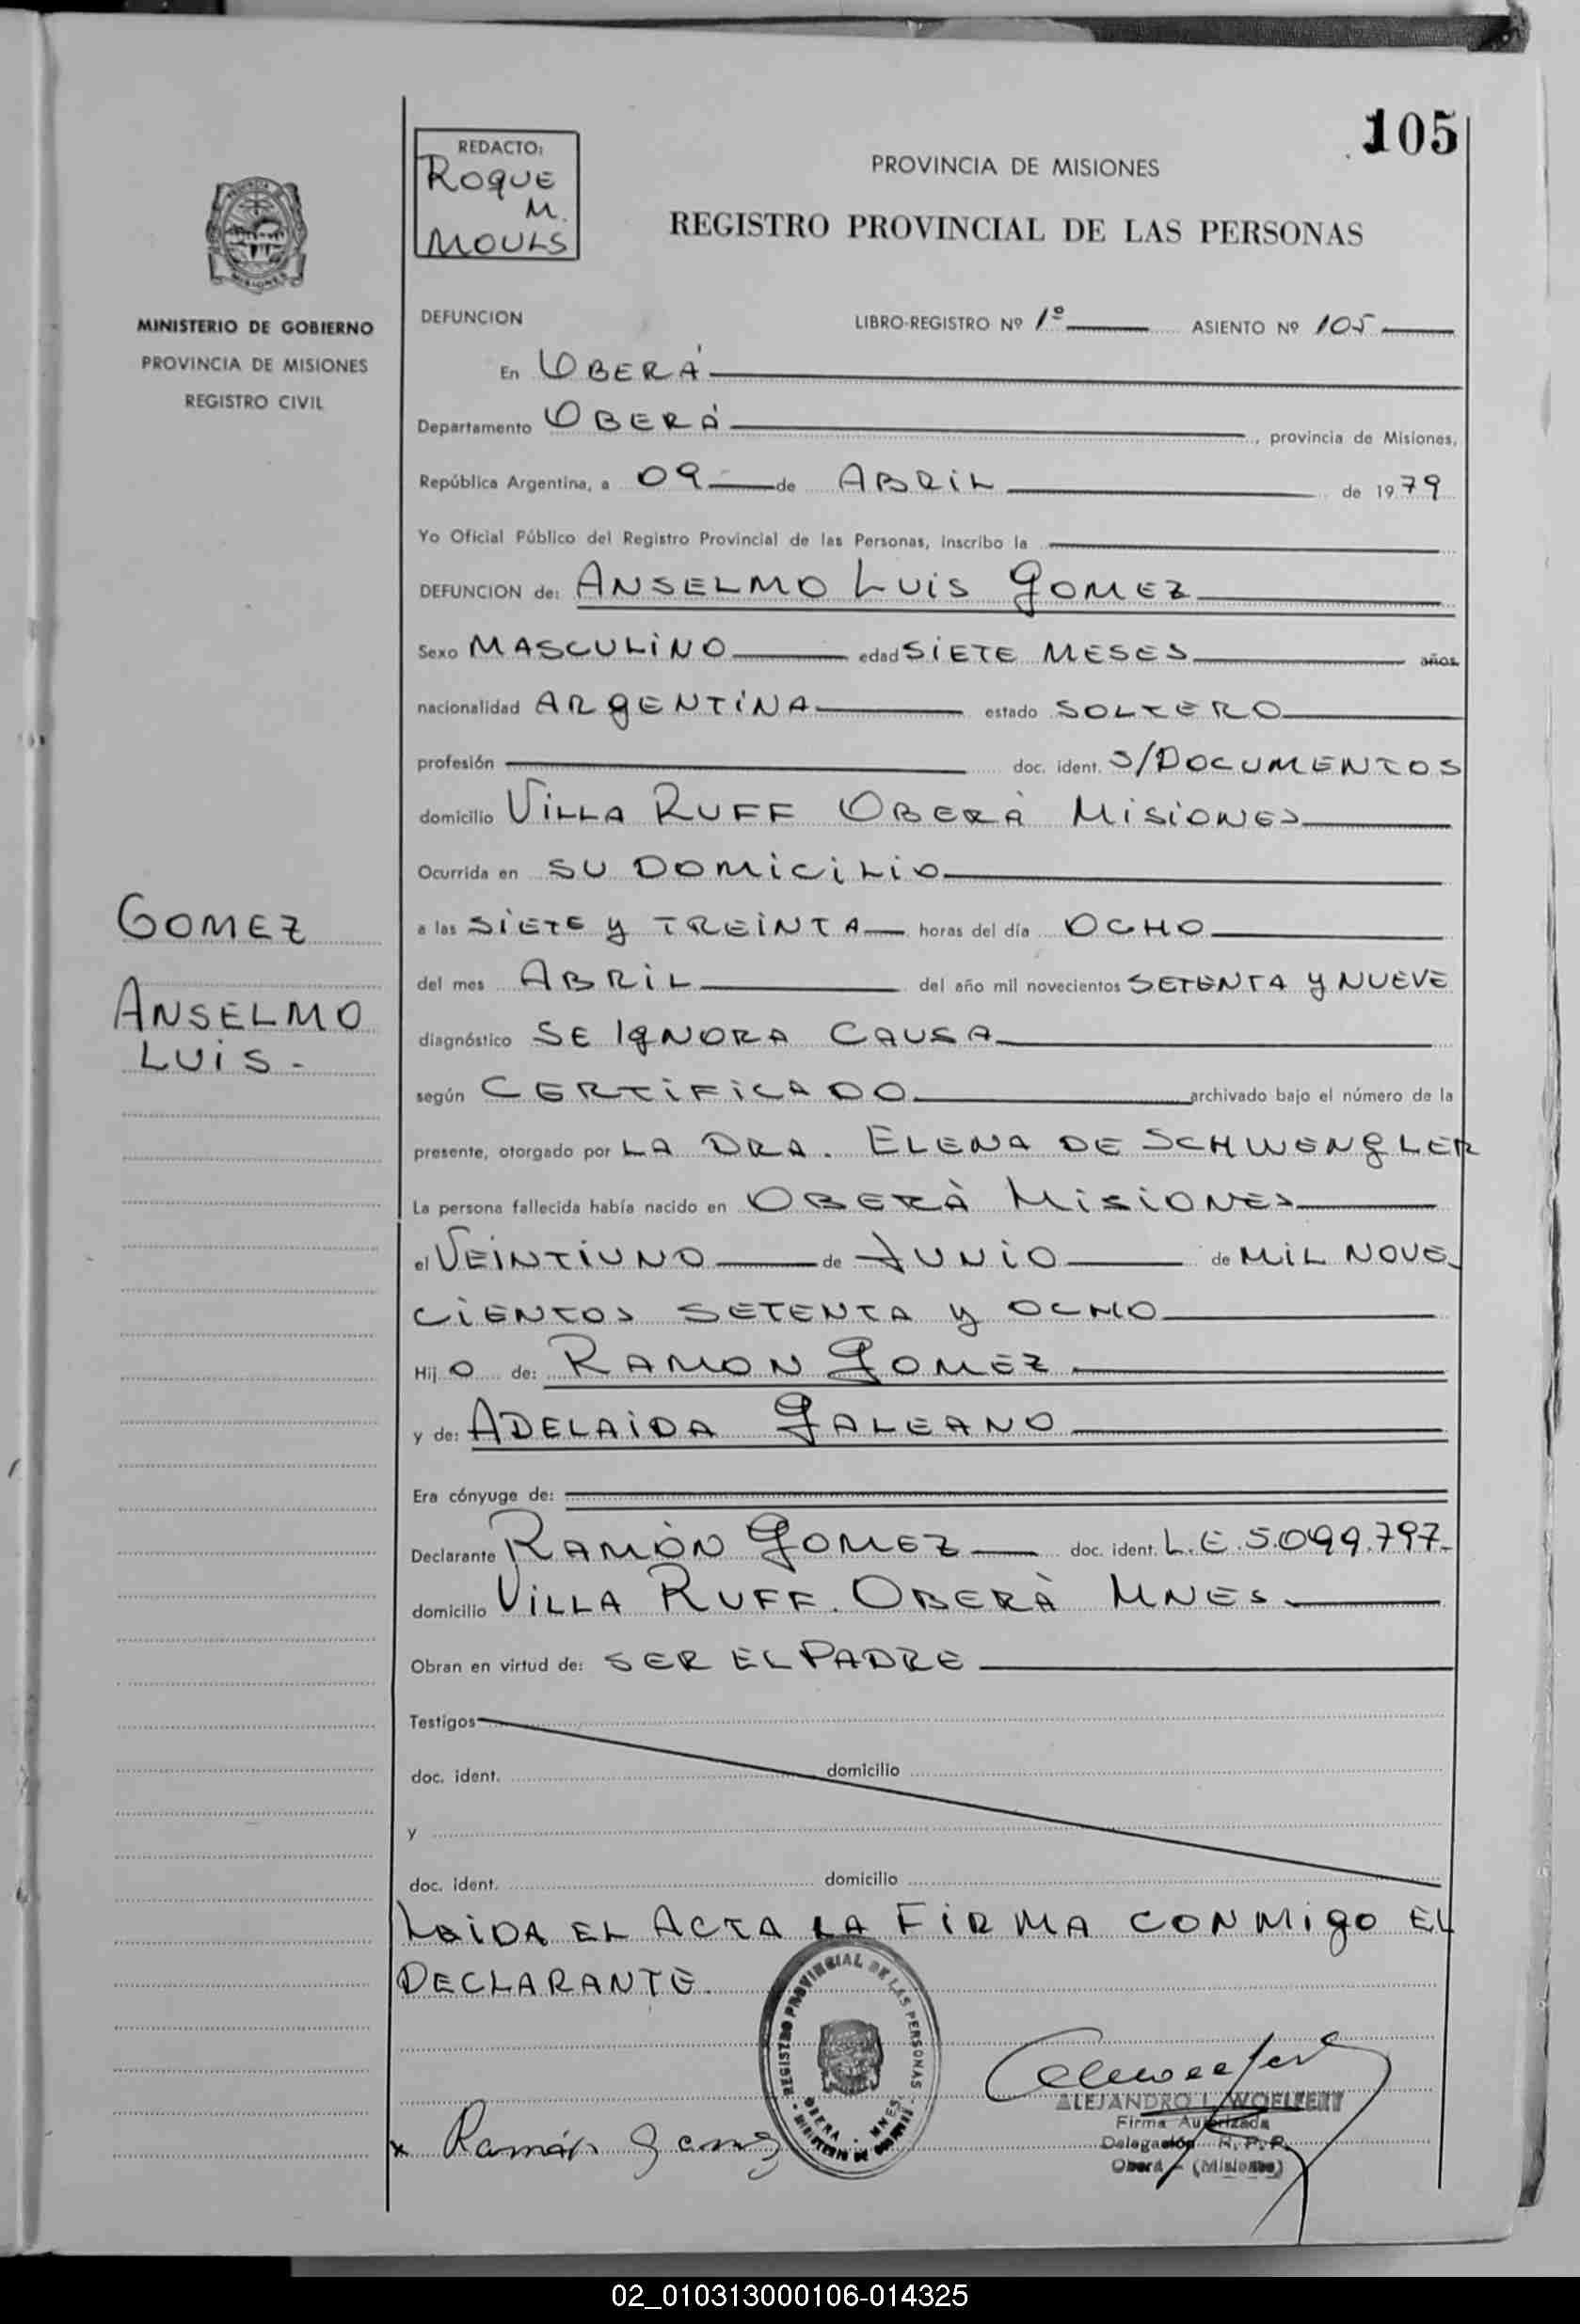 105
REDACTO:
ROQUE
M.
MOULS
PROVINCIA DE MISIONES
REGISTRO PROVINCIAL DE LAS PERSONAS
MISIONES
MINISTERIO DE GOBIERNO
PROVINCIA DE MISIONES
REGISTRO CIVIL
GOMEZ
ANSELMO
LUIS.-
DEFUNCION LIBRO-REGISTRO Nº 1º ASIENTO Nº 105
En OBERÁ
Departamento OBERÁ, provincia de Misiones,
República Argentina, a 09 de ABRIL de 1979
Yo Oficial Público del Registro Provincial de las Personas, inscribo la
DEFUNCION de: ANSELMO LUIS GOMEZ
Sexo MASCULINO edad SIETE MESES años
nacionalidad ARGENTINA estado SOLTERO
profesión doc. ident. S/DOCUMENTOS
domicilio VILLA RUFF OBERÀ MISIONES
Ocurrida en SU DOMICILIO
a las SIETE Y TREINTA horas del día OCHO
del mes ABRIL del año mil novecientos SETENTA Y NUEVE
diagnóstico SE IGNORA CAUSA
según CERTIFICADO archivado bajo el número de la
presente, otorgado por LA DRA. ELENA DE SCHWENGLER
La persona fallecida había nacido en OBERÀ MISIONES
el VEINTIUNO de JUNIO de MIL NOVE
CIENTOS SETENTA Y OCHO
Hijo de: RAMON GOMEZ
y de: ADELAIDA GALEANO
Era cónyuge de:
Declarante RAMÒN GOMEZ doc. ident. L.E.5.099.797-
domicilio VILLA RUFF. OBERÀ MNES.
Obran en virtud de: SER EL PADRE
Testigos
doc. ident. domicilio
y
doc. ident. domicilio
LEIDA EL ACTA LA FIRMA CONMIGO EL
DECLARANTE.
REGISTRO PROVINCIAL DE LAS PERSONAS
OBERA - MNES.
MINISTERIO DE GOBIERNO
ALEJANDRO L. WOELFERT
Firma Autorizada
Delegación R.P.P.
Oberá - (Misiones)
x Ramón Gomez
02_010313000106-014325